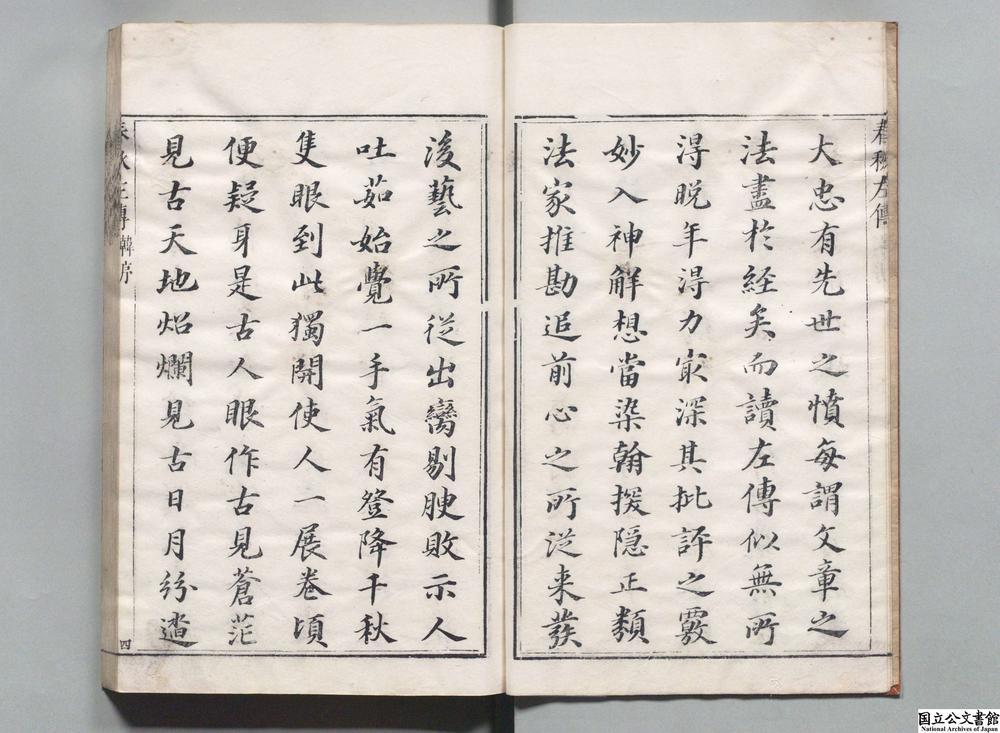 春秋左傳
大忠有先世之憤每謂文章之
法盡於經矣而讀左傳似無所
淂晚年淂力㝡深其批評之覈
妙入神解想當染翰援隐正類
法家推勘追前心之所從来發
後藝之所從出臠剔腴敗示人
吐茹始覺一手氣有登降千秋
隻眼到此獨開使人一展卷頃
便疑身是古人眼作古見蒼茫
見古天地炤爛見古日月紛遝
春秋左傳 韓序
四
国立公文書館
National Archives of Japan